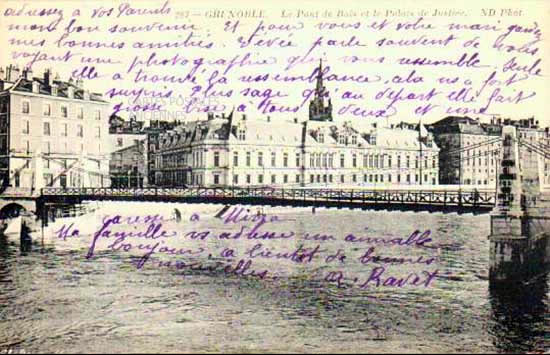 287 - GRENOBLE. Le Pont de Bois et le Palais de Justice. ND Phot.
adressez a vos Parents
mon bon souvenir. Et pour vous et votre mari
mes bonnes amitiés. parle souvent de vous
Voyant une photographie que vous ressemble Seule
elle a trouvé la ressemblance, cela ns a fait
surpris. Plus sage qu'au départ elle fait
grosse bise a tous deux et une
caresse a
Ma famille vs adresse un aimable
bonjour, a bientot de bonnes
nouvelles. A. Ravet